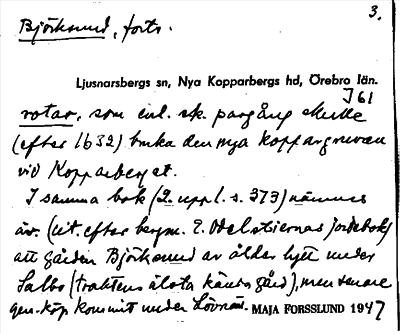 3.
Björksund, forts.
Ljusnarsbergs sn, Nya Kopparbergs hd, Örebro län.
J61
rotar, som enl. sk. pargång skulle
(efter 1632) bruka den nya koppargruvan
vid Kopparberget.
I samma bok (2. uppl. s. 373) nämnes
äv. (cit. efter bergm. E. Odelstiernas jordebok)
att gården Björksund av ålder lytt under
Salbo (traktens älsta kända gård), men senare
gen. köp kommit under Lövnäs. MAJA FORSSLUND 1947